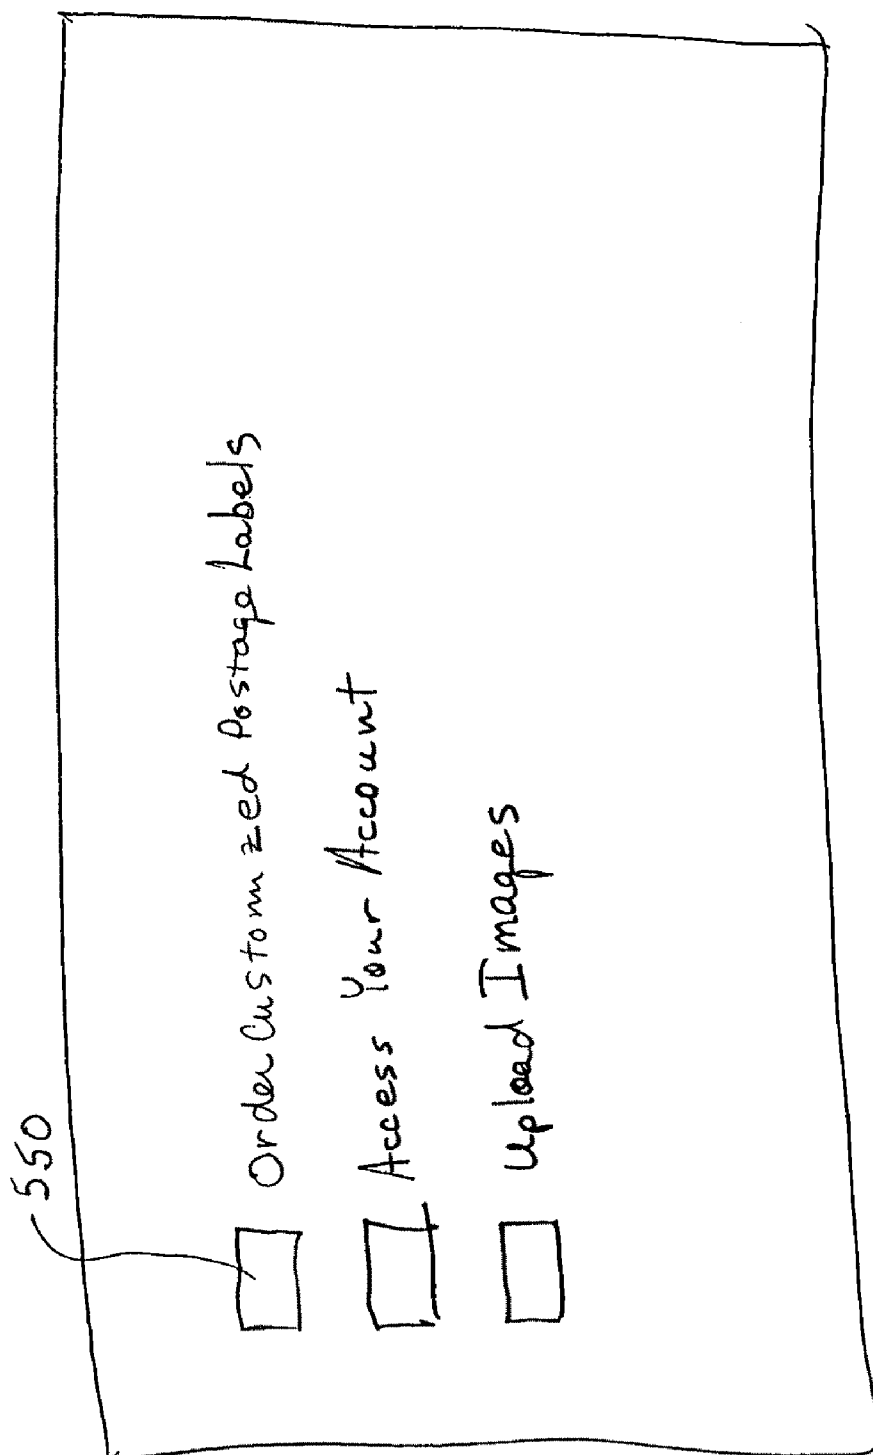 550
Order Customized Postage Labels
Access Your Account
Upload Images